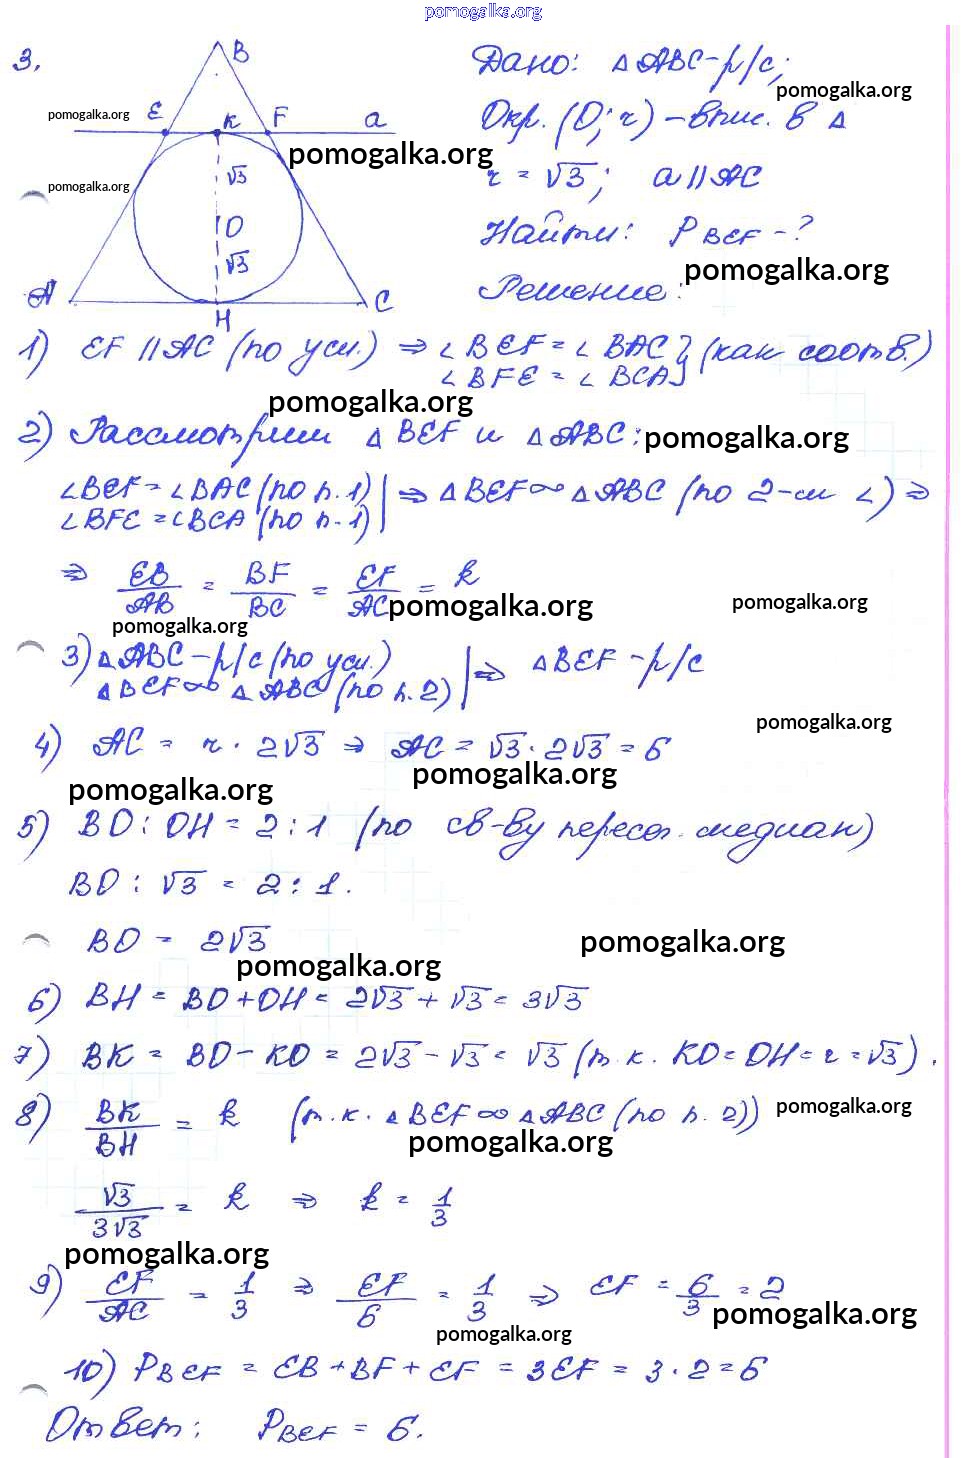 pomogalka.org
3.
B
E K F a
pomogalka.org
pomogalka.org
pomogalka.org
√3
O
√3
A H C
Дано: △ABC-р/с;
pomogalka.org
Окр. (O; r) – впис. в △
r = √3; a || AC
Найти: P BEF - ?
pomogalka.org
Решение:
1) EF || AC (по усл.) ⇒ ∠BEF = ∠BAC } (как соотв.)
∠BFE = ∠BCA
pomogalka.org
2) Рассмотрим △BEF и △ABC:
pomogalka.org
∠BEF = ∠BAC (по п.1) | ⇒ △BEF ∞ △ABC (по 2-м ∠) ⇒
∠BFE = ∠BCA (по п.1)
⇒ EB/AB = BF/BC = EF/AC = k
pomogalka.org
pomogalka.org
pomogalka.org
3) △ABC – р/с (по усл.) | ⇒ △BEF – р/с
△BEF ∞ △ABC (по п.2)
pomogalka.org
4) AC = r · 2√3 ⇒ AC = √3 · 2√3 = 6
pomogalka.org
pomogalka.org
5) BO : OH = 2 : 1 (по св-ву пересеч. медиан)
BO : √3 = 2 : 1.
BO = 2√3
pomogalka.org
pomogalka.org
6) BH = BO + OH = 2√3 + √3 = 3√3
7) BK = BO – KO = 2√3 – √3 = √3 (т.к. KO = OH = r = √3).
8) BK/BH = k (т.к. △BEF ∞ △ABC (по п. 2))
pomogalka.org
pomogalka.org
√3/3√3 = k ⇒ k = 1/3
pomogalka.org
9) EF/AC = 1/3 ⇒ EF/6 = 1/3 ⇒ EF = 6/3 = 2
pomogalka.org
pomogalka.org
10) P BEF = EB + BF + EF = 3EF = 3 · 2 = 6
Ответ: P BEF = 6.